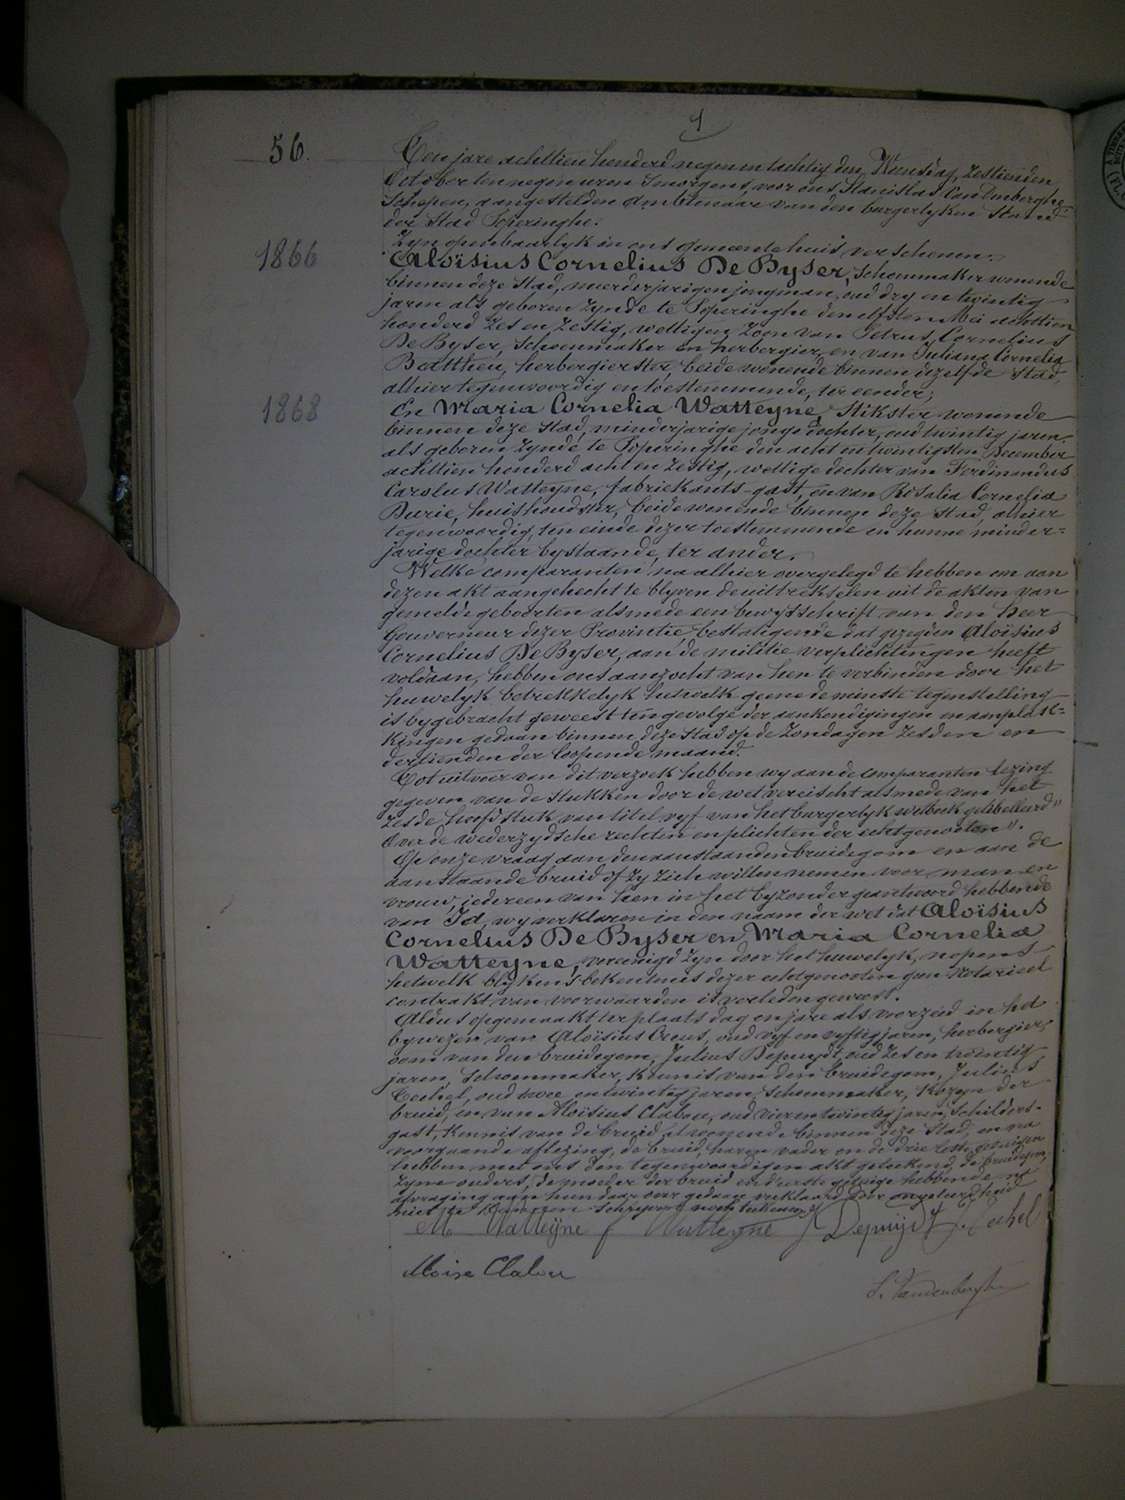 1
56.
Ten jare achttien honderd negen en tachtig den Woensdag, zestienden
October ten negen uren 's morgens, voor ons, Stanislas Van Denberghe
Schepen, aangestelden Ambtenaar van den burgerlyken Stand
der Stad Poperinghe.
Zyn openbaarlyk in ons gemeentehuis verschenen:
1866
Aloïsius Cornelius De Byser, schoenmaker wonende
binnen deze stad, meerderjarigen jongman, oud dry en twintig
jaren als geboren zynde te Poperinghe den elfsten Mei achttien
honderd zes en zestig, wettigen zoon van Petrus Cornelius
De Byser, schoenmaker en herbergier, en van Juliana Cornelia
Battheu, herbergierster, beide wonende binnen dezelfde stad,
alhier tegenwoordig en toestemmende, ter eender;
1868
En Maria Cornelia Watteyne, Stikster wonende
binnen deze stad, minderjarige jonge dochter, oud twintig jaren
als geboren zynde te Poperinghe den acht en twintigsten December
achttien honderd acht en zestig, wettige dochter van Ferdinandus
Carolus Watteyne, fabriekants-gast, en van Rosalia Cornelia
Durie, huishoudster, beide wonende binnen deze stad, alhier
tegenwoordig, ten einde dezer toestemmende en hunne minder-
jarige dochter bystaande, ter ander.
Welke comparanten, na alhier overgelegd te hebben om aan
dezen akt aangehecht te blyven de uittreksels uit de akten van
gemelde geboorten alsmede een bewysschrift van den heer
Gouverneur dezer Provintie bestatigende dat gezegden Aloïsius
Cornelius De Byser, aan de militie verplichtingen heeft
voldaan, hebben ons aanzocht van hen te verbinden door het
huwelyk betrekkelyk hetwelk geene de minste tegenstelling
is bygebracht geweest ten gevolge der aankondigingen en aanplak-
kingen gedaan binnen deze stad op de zondagen zesden en
dertienden der loopende maand.
Tot uitvoer van dit verzoek hebben wy aan de comparanten lezing
gegeven van de stukken door de wet vereischt alsmede van het
zesde hoofdstuk van titel vyf van het burgerlyk wetboek gelibelleerd "
Over de wederzydsche rechten en plichten der echtgenooten ".
Op onze vraag aan den aanstaanden bruidegom en aan de
aanstaande bruid of zy zich willen nemen voor man en
vrouw, iedereen van hen in het byzonder geantwoord hebbende
van Ja, wy verklaren in den naam der wet dat Aloïsius
Cornelius De Byser en Maria Cornelia
Watteyne, vereenigd zyn door het huwelyk, nopens
hetwelk blykens bekentenis dezer echtgenooten geen Notarieel
contrakt van voorwaarden is verleden geweest.
Aldus opgemaakt ter plaats dag en jare als voorzeid in het
bywezen van Aloïsius oud vyf en vyftig jaren, herbergier,
oom van den bruidegom, Julius Depuydt, oud zes en twintig
jaren, schoenmaker, kennis van den bruidegom, Julius
oud twee en twintig jaren, schoenmaker, kozyn der
bruid, en van Aloïsius Clabau, oud vier en twintig jaren, Schilders-
gast, kennis van de bruid, al wonende binnen deze Stad, en na
voorgaande aflezing, de bruid, haren vader en de drie leste getuigen
hebben met ons den tegenwoordigen akt geteekend, de bruidegom,
zyne ouders, de moeder der bruid en d'eerste getuige hebbende na
afvraging aan hun daar over gedaan verklaard door ongeleerdheid
niet te kunnen schryven noch teekenen.
M Watteyne f Watteyne J Depuydt J.
Moise Clabau
S. Vandenberghe